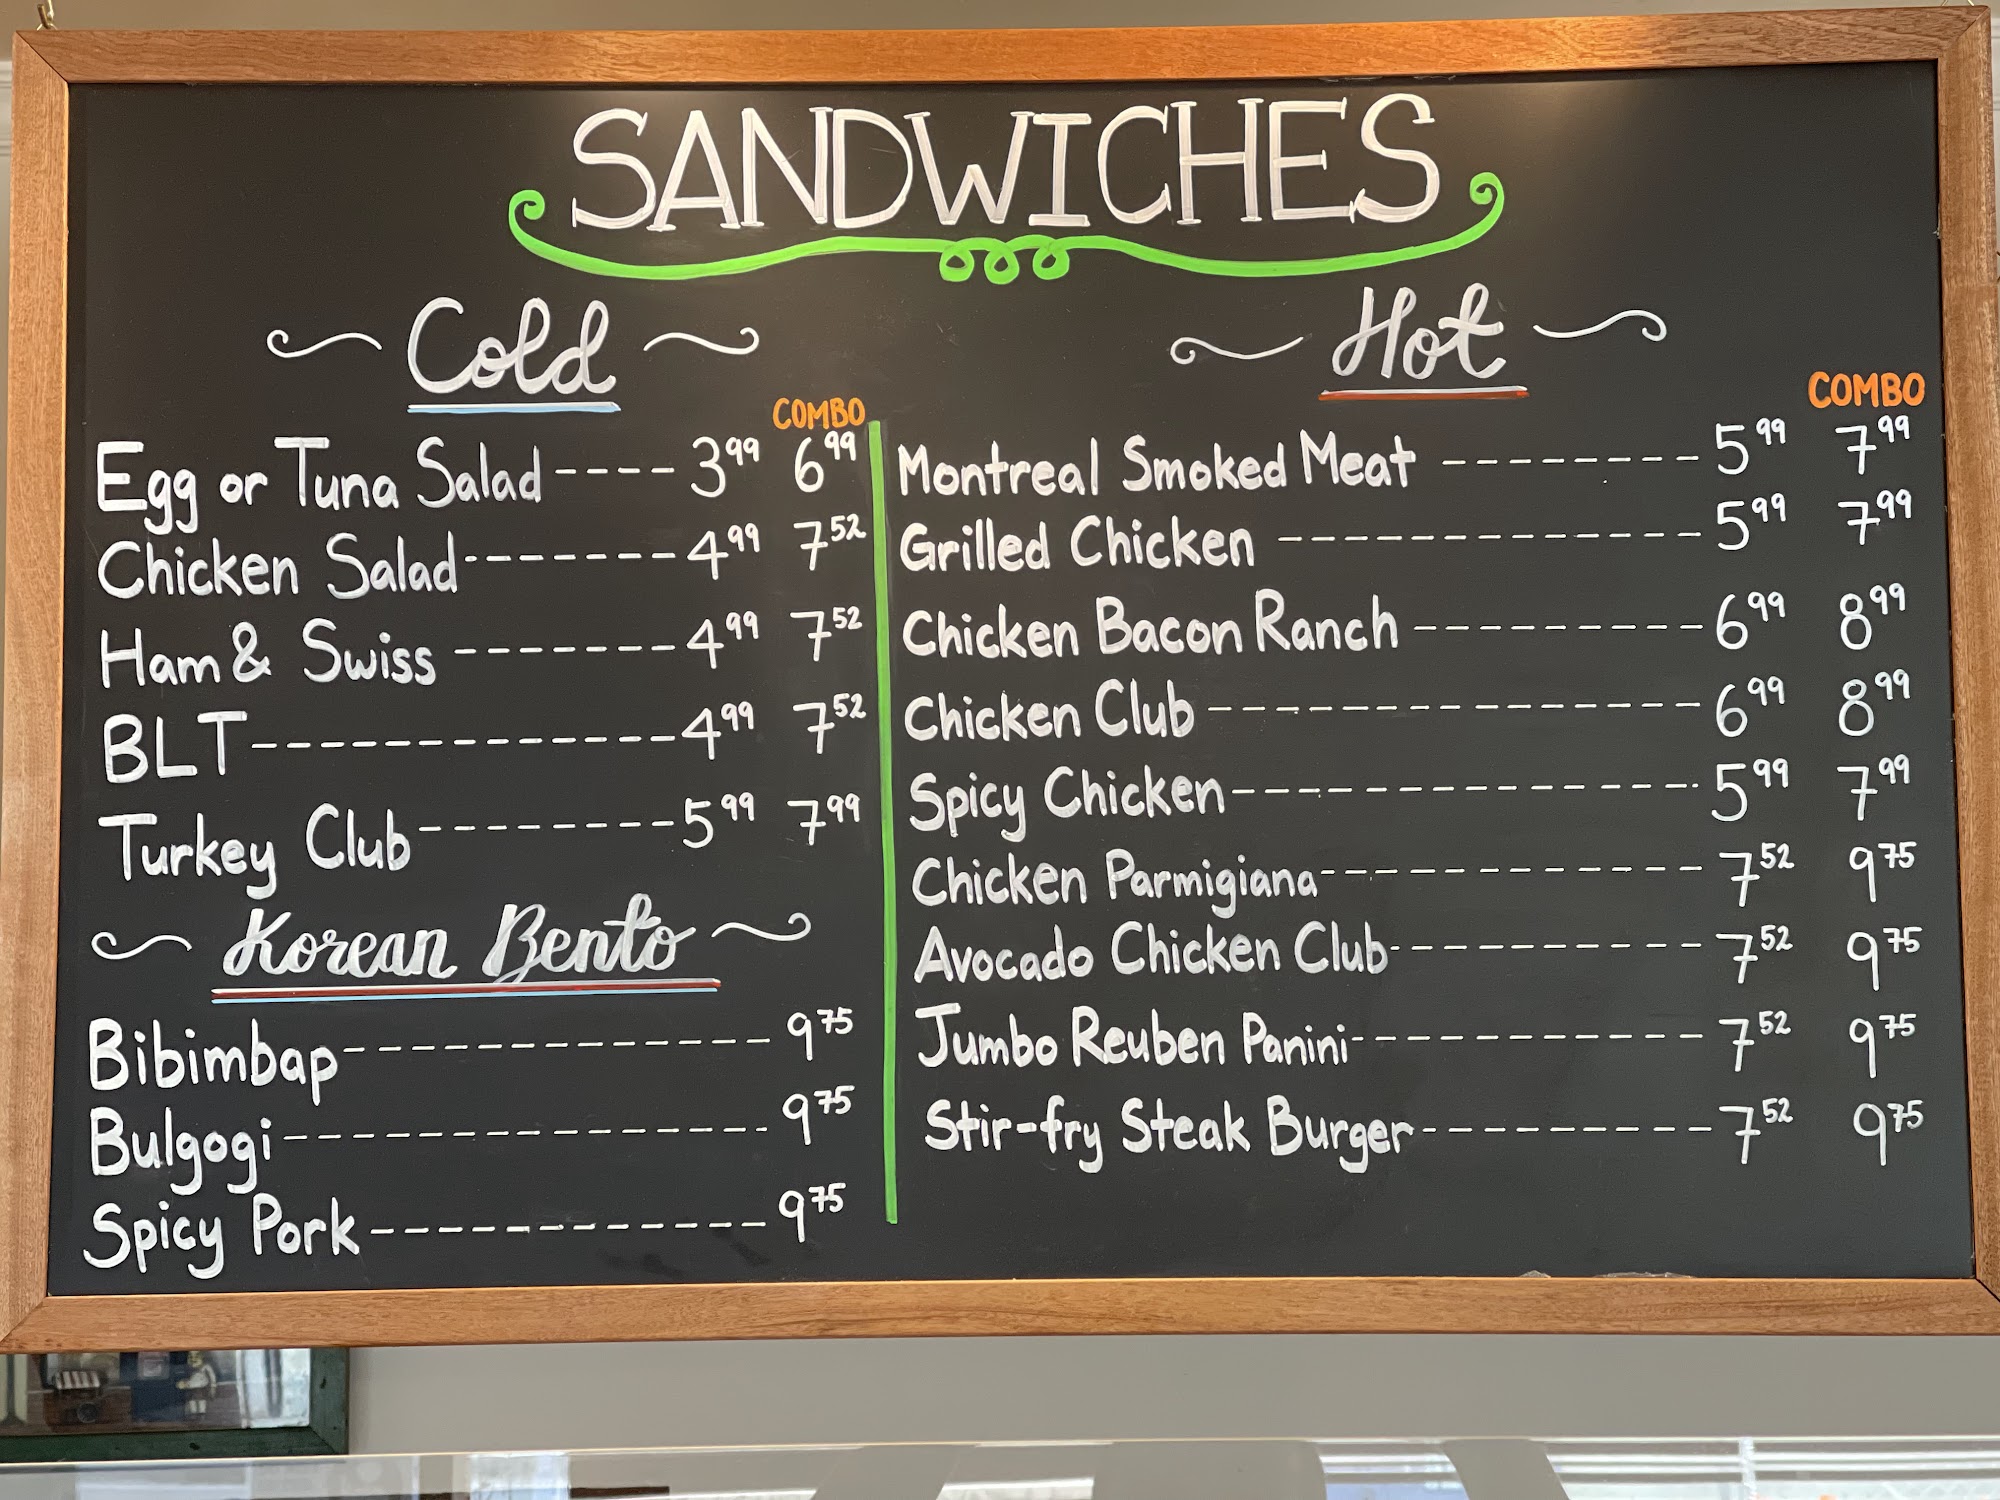 SANDWICHES
Cold
COMBO
Egg or Tuna Salad ---- 3.99 6.99
Chicken Salad ------- 4.99 7.52
Ham & Swiss ------- 4.99 7.52
BLT ------------- 4.99 7.52
Turkey Club -------- 5.99 7.99
Korean Bento
Bibimbap ------------- 9.75
Bulgogi ---------------- 9.75
Spicy Pork ------------ 9.75
Hot
COMBO
Montreal Smoked Meat -------- 5.99 7.99
Grilled Chicken ------------- 5.99 7.99
Chicken Bacon Ranch --------- 6.99 8.99
Chicken Club --------------- 6.99 8.99
Spicy Chicken -------------- 5.99 7.99
Chicken Parmigiana ----------- 7.52 9.75
Avocado Chicken Club --------- 7.52 9.75
Jumbo Reuben Panini ---------- 7.52 9.75
Stir-fry Steak Burger --------- 7.52 9.75